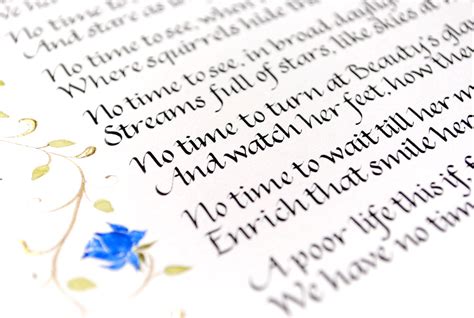 And stare as
No time to see, w
Where squirrels hide th
No time to see, in broad dayli
Streams full of stars, like skies at
No time to turn at Beauty's gla
And watch her feet, how the
No time to wait till her m
Enrich that smile her
A poor life this if
We have no tim